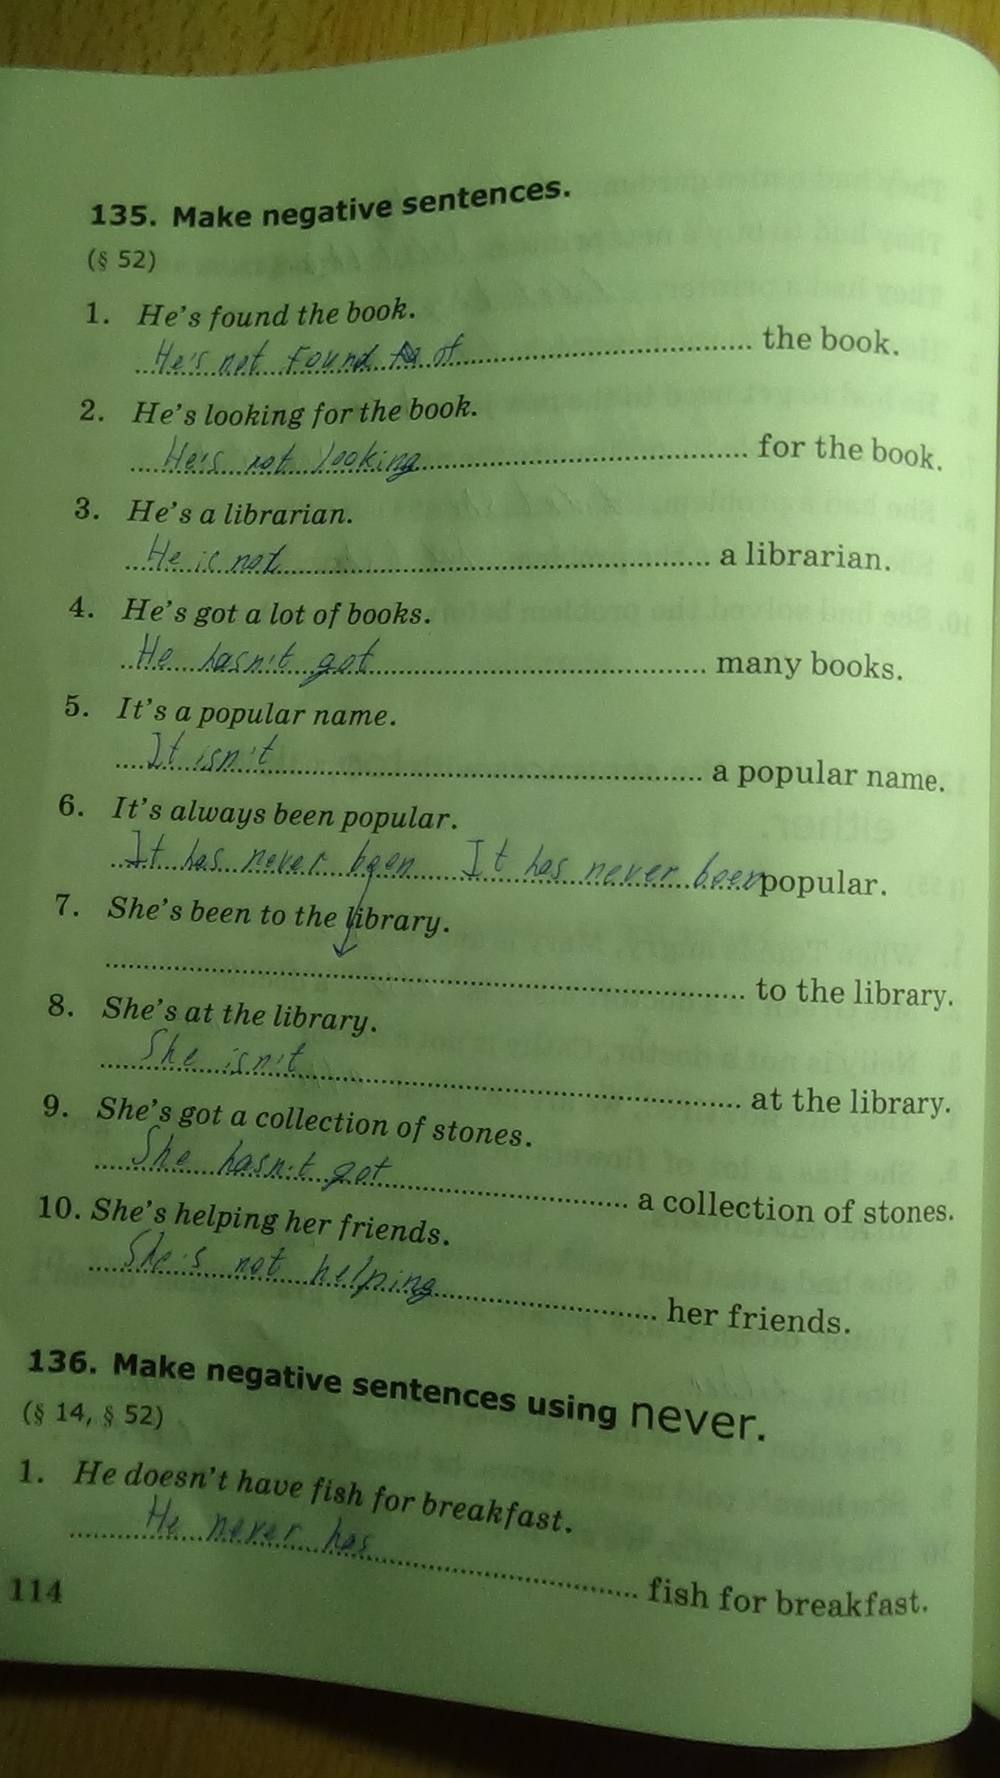 135. Make negative sentences.
(§ 52)
1. He's found the book.
He's not Found of the book.
2. He's looking for the book.
He's not looking for the book.
3. He's a librarian.
He is not a librarian.
4. He's got a lot of books.
He hasn't got many books.
5. It's a popular name.
It isn't a popular name.
6. It's always been popular.
It has never been It has never been popular.
7. She's been to the library.
to the library.
8. She's at the library.
She isn't at the library.
9. She's got a collection of stones.
She hasn't got a collection of stones.
10. She's helping her friends.
She's not helping her friends.
136. Make negative sentences using never.
(§ 14, § 52)
1. He doesn't have fish for breakfast.
He never has fish for breakfast.
114